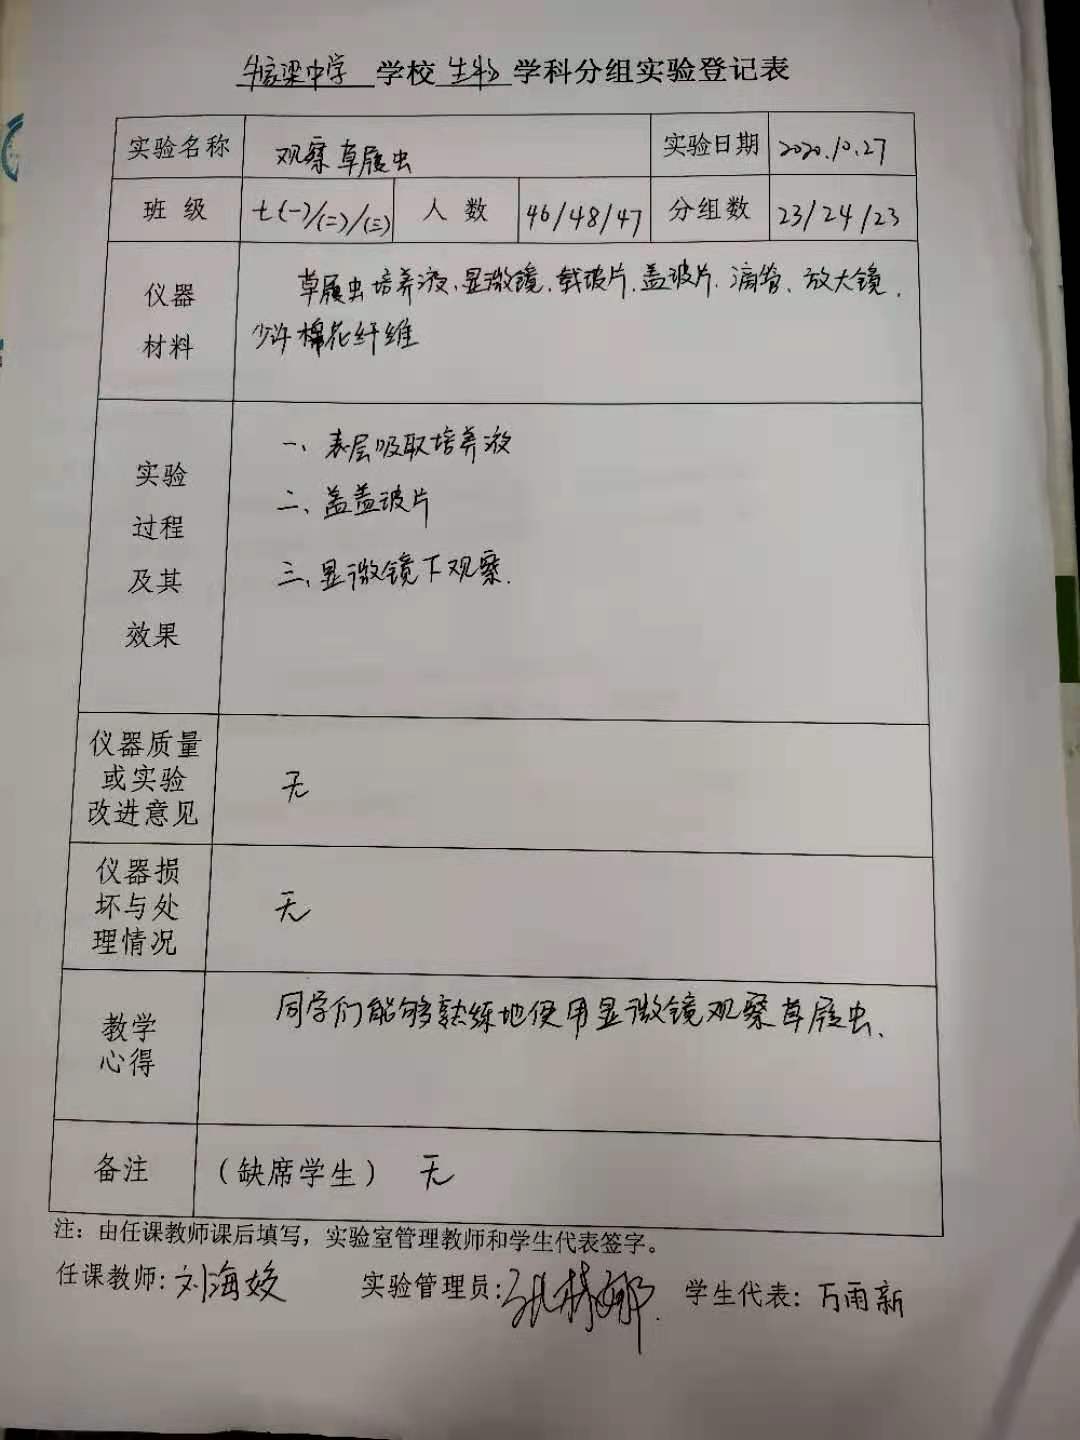 牛家梁中学 学校 生物 学科分组实验登记表
实验名称 观察草履虫 实验日期 2020.10.27
班级 七(一)/(二)/(三) 人数 46/48/47 分组数 23/24/23
仪器
材料
草履虫培养液、显微镜、载玻片、盖玻片、滴管、放大镜、
少许棉花纤维
实验
过程
及其
效果
一、表层吸取培养液
二、盖盖玻片
三、显微镜下观察.
仪器质量
或实验
改进意见
无
仪器损
坏与处
理情况
无
教学
心得
同学们能够熟练地使用显微镜观察草履虫、
备注 （缺席学生） 无
注：由任课教师课后填写，实验室管理教师和学生代表签字。
任课教师: 刘海姣 实验管理员: 学生代表: 万雨新